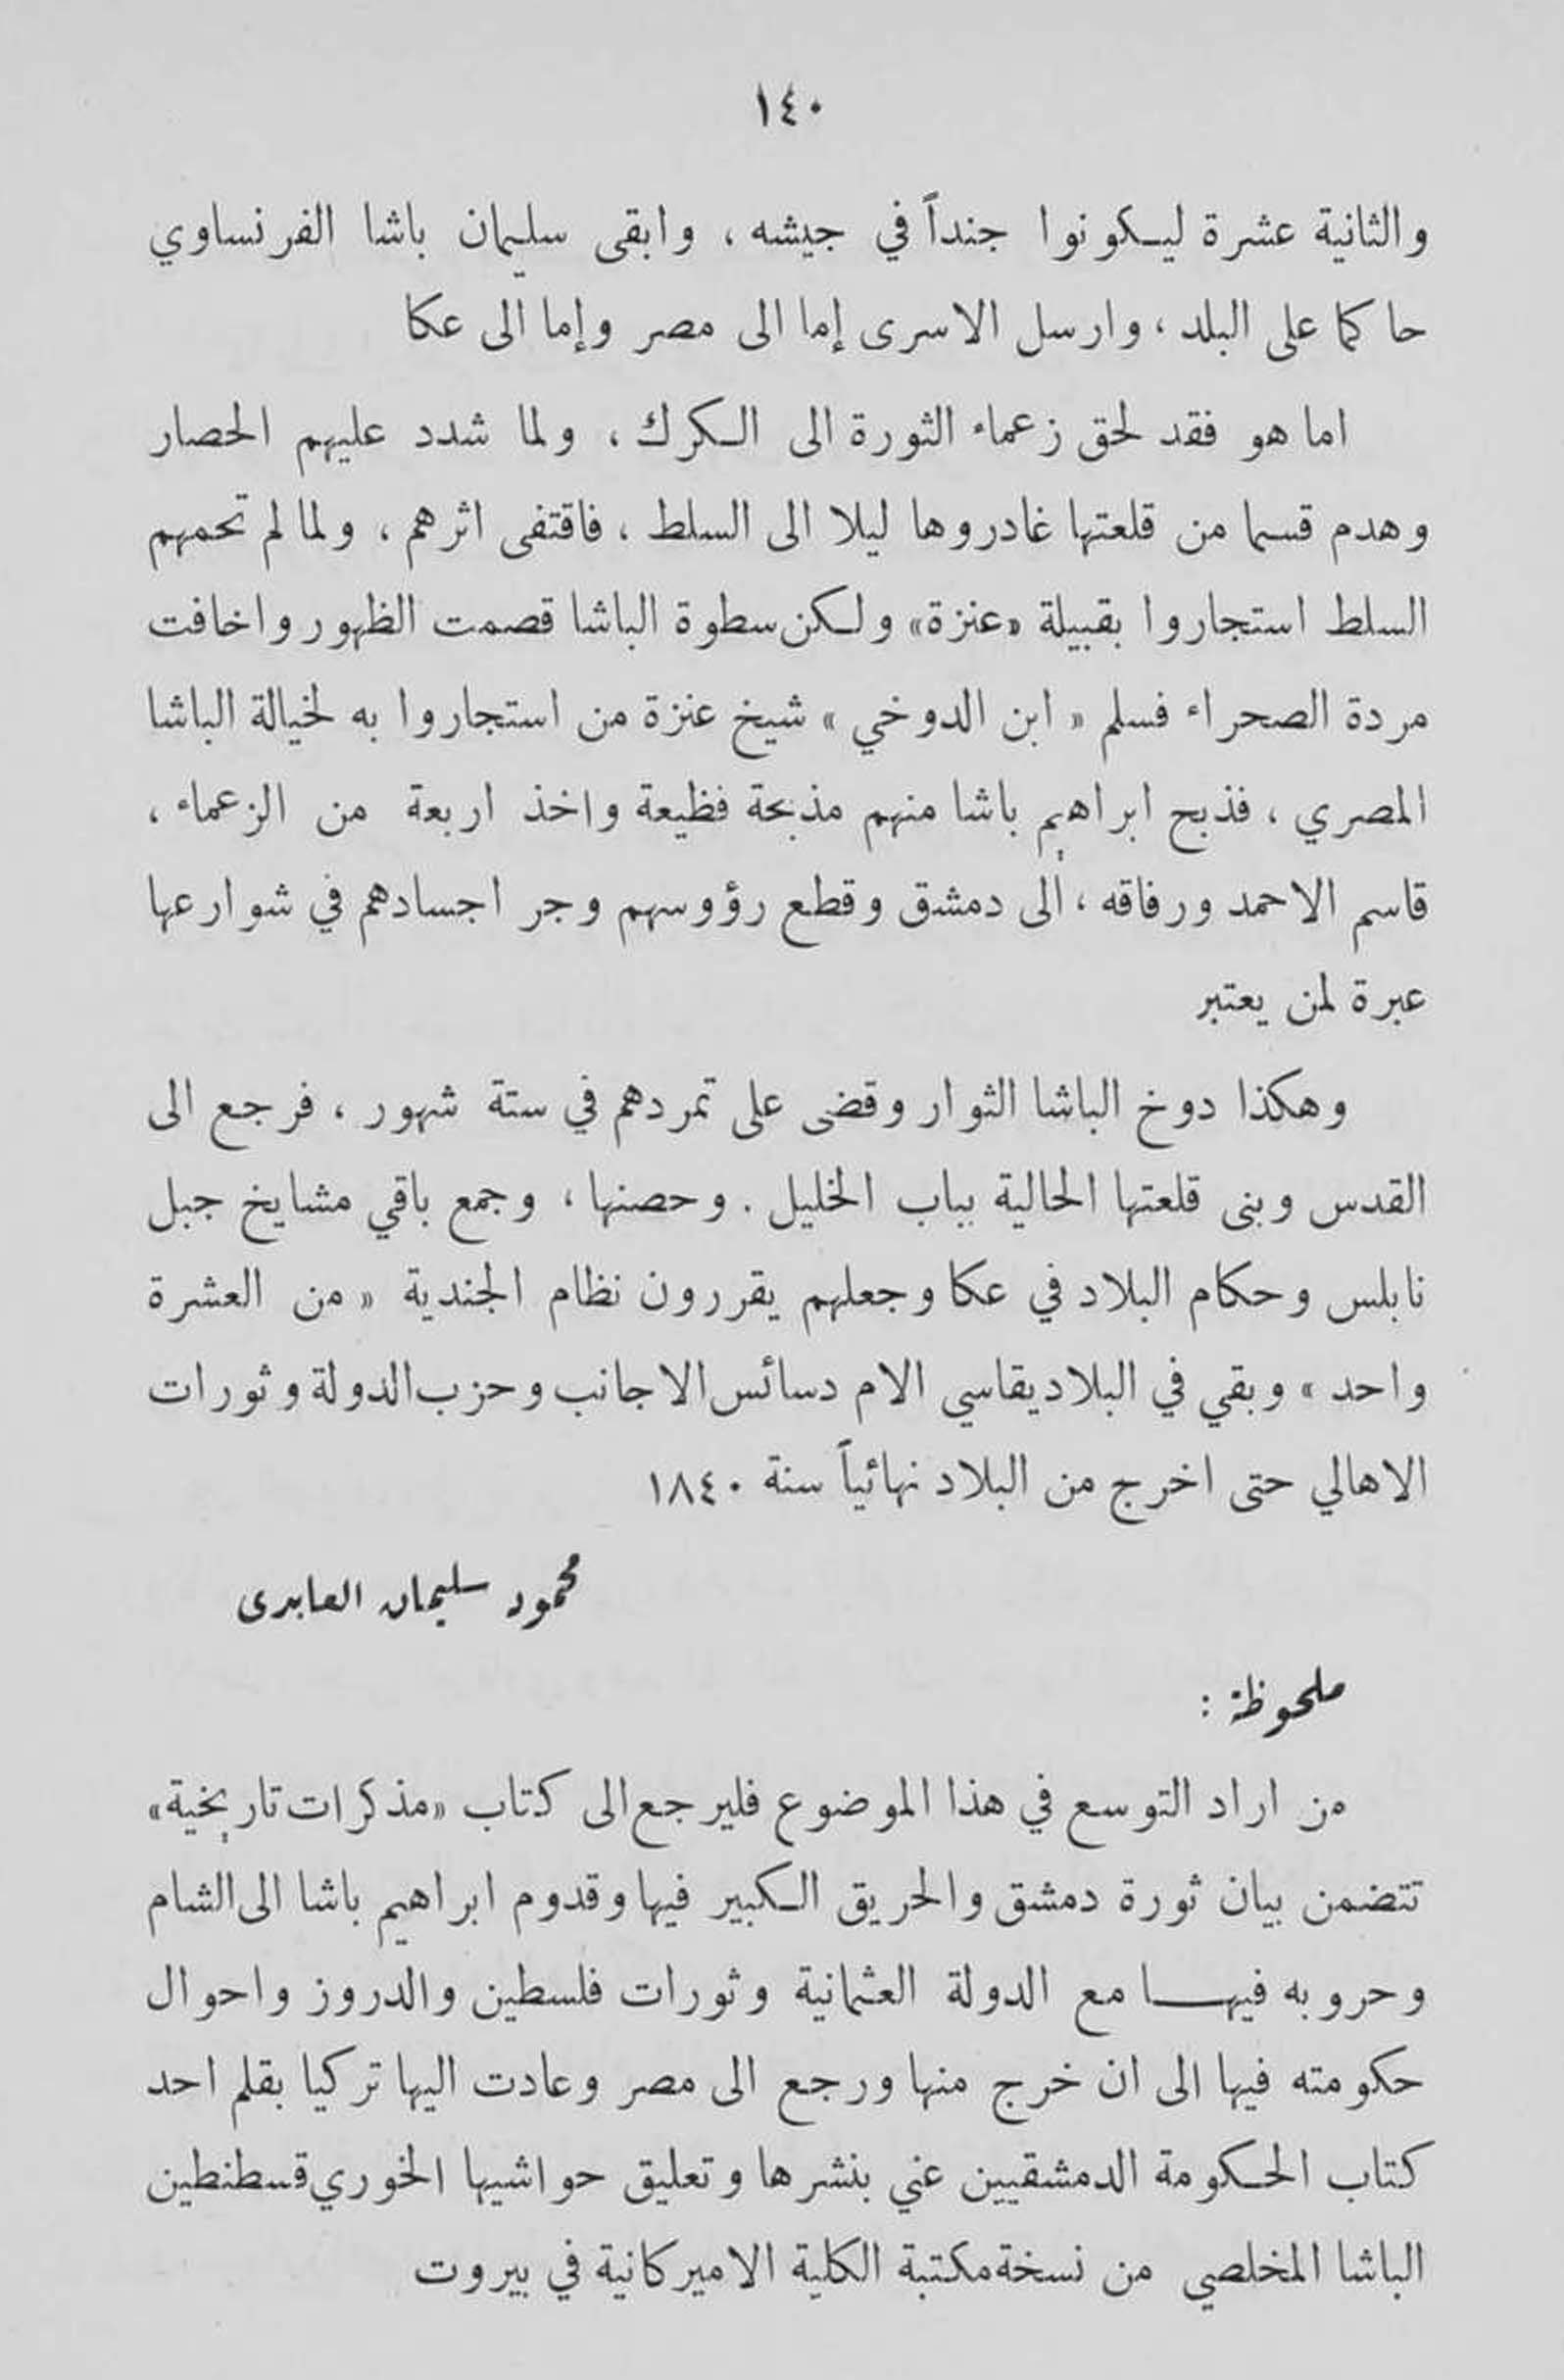 ١٤٠
والثانية عشرة ليكونوا جنداً في جيشه ، وابقى سليمان باشا الفرنساوي
حاكما على البلد ، وارسل الاسرى إما الى مصر وإما الى عكا
اما هو فقد لحق زعماء الثورة الى الكرك ، ولما شدد عليهم الحصار
وهدم قسما من قلعتها غادروها ليلا الى السلط ، فاقتفى اثرهم ، ولما لم تحمهم
السلط استجاروا بقبيلة «عنزة» ولكن سطوة الباشا قصمت الظهور واخافت
مردة الصحراء فسلم « ابن الدوخي » شيخ عنزة من استجاروا به لخيالة الباشا
المصري ، فذبح ابراهيم باشا منهم مذبحة فظيعة واخذ اربعة من الزعماء ،
قاسم الاحمد ورفاقه ، ألى دمشق وقطع رؤوسهم وجر اجسادهم في شوارعها
عبرة لمن يعتبر
وهكذا دوخ الباشا الثوار وقضى على تمردهم في ستة شهور ، فرجع الى
القدس وبنى قلعتها الحالية بباب الخليل . وحصنها ، وجمع باقي مشايخ جبل
نابلس وحكام البلاد في عكا وجعلهم يقررون نظام الجندية « من العشرة
واحد » وبقي في البلاد يقاسي الام دسائس الاجانب وحزب الدولة وثورات
الاهالي حتى اخرج من البلاد نهائياً سنة ١٨٤٠
محمود سليمان العابدى
ملحوظة :
من اراد التوسع في هذا الموضوع فليرجع الى كتاب «مذكرات تاريخية»
تتضمن بيان ثورة دمشق والحريق الكبير فيها وقدوم ابراهيم باشا الى الشام
وحروبه فيهـا مع الدولة العثمانية وثورات فلسطين والدروز واحوال
حكومته فيها الى ان خرج منها ورجع الى مصر وعادت اليها تركيا بقلم احد
كتاب الحكومة الدمشقيين عني بنشرها وتعليق حواشيها الخوري قسطنطين
الباشا المخلصي من نسخة مكتبة الكلية الاميركانية في بيروت